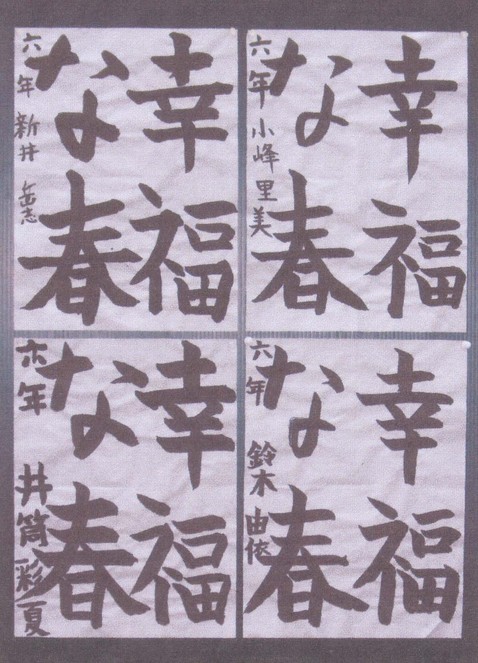 幸福
な春
六年 小峰里美
幸福
な春
六年 新井
幸福
な春
六年 鈴木由依
幸福
な春
六年 井筒彩夏